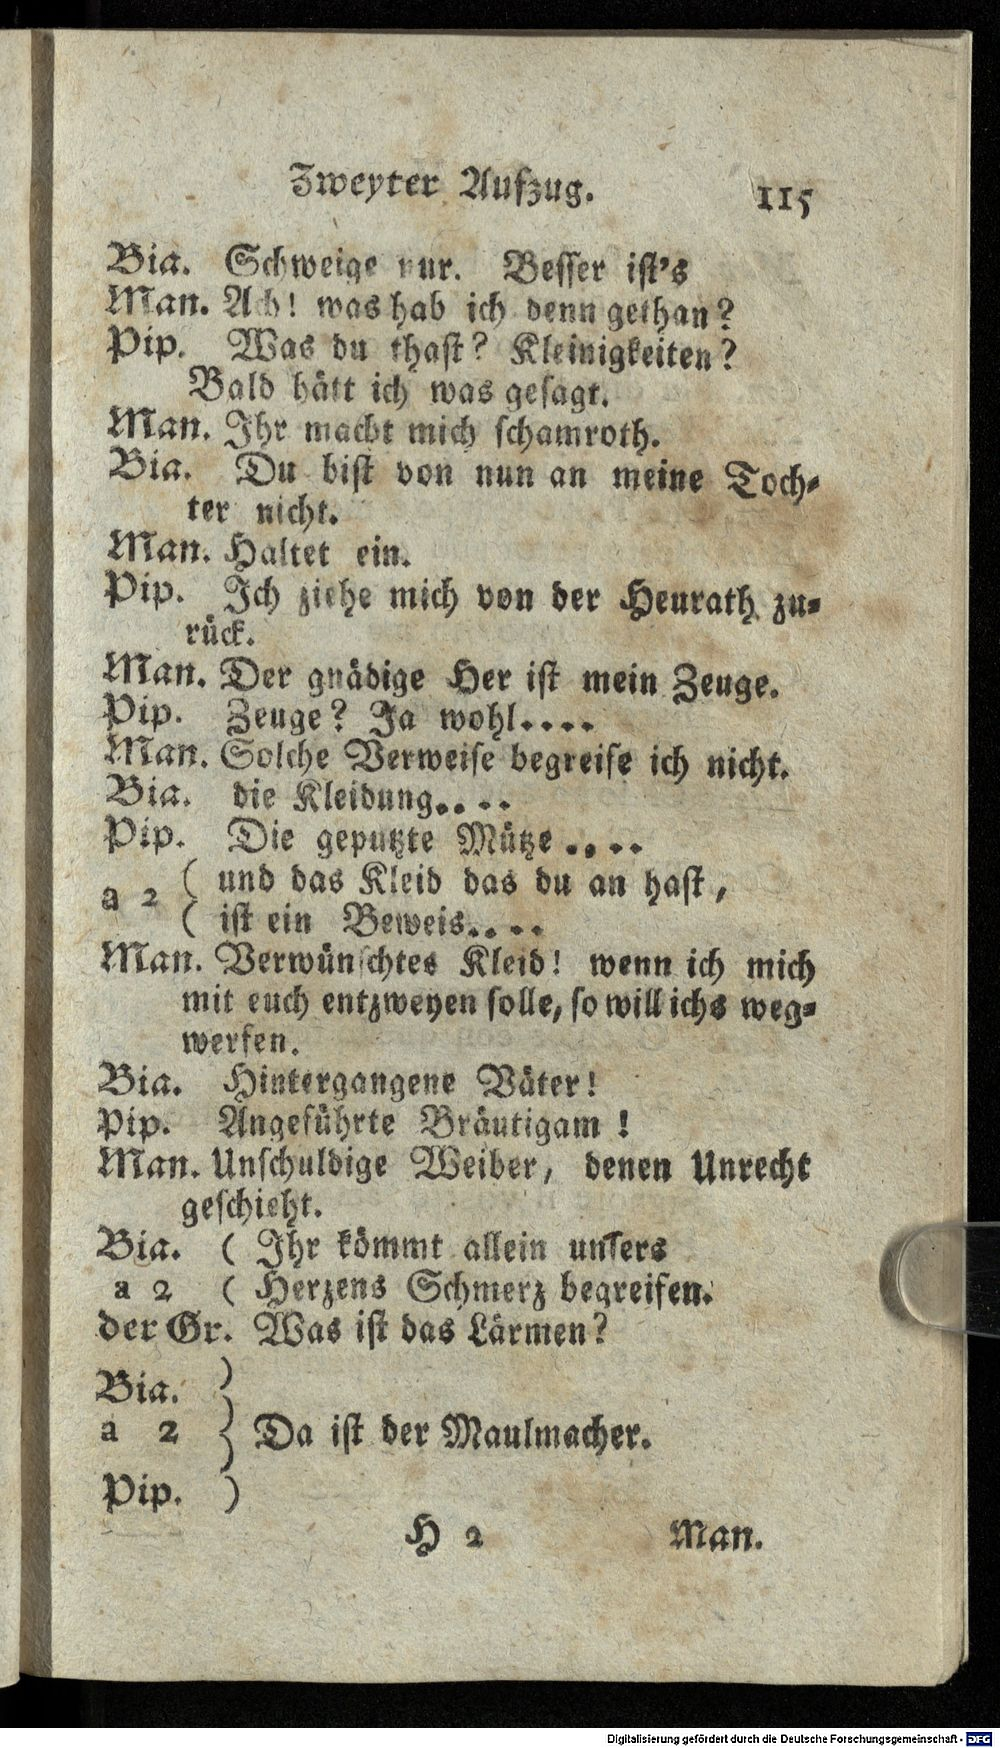 Zweyter Aufzug. 115
Bia. Schweige nur. Besser ist's
Man. Ach! was hab ich denn gethan?
Pip. Was du thast? Kleinigkeiten?
Bald hätt ich was gesagt.
Man. Ihr macht mich schamroth.
Bia. Du bist von nun an meine Toch-
ter nicht.
Man. Haltet ein.
Pip. Ich ziehe mich von der Heurath zu-
rück.
Man. Der gnädige Her ist mein Zeuge.
Pip. Zeuge? Ja wohl....
Man. Solche Verweise begreife ich nicht.
Bia. die Kleidung....
Pip. Die geputzte Mütze....
a 2 ( und das Kleid das du an hast,
( ist ein Beweis....
Man. Verwünschtes Kleid! wenn ich mich
mit euch entzweyen solle, so will ichs weg-
werfen.
Bia. Hintergangene Väter!
Pip. Angeführte Bräutigam!
Man. Unschuldige Weiber, denen Unrecht
geschieht.
Bia. ( Ihr kömmt allein unsers
a 2 ( Herzens Schmerz begreifen.
der Gr. Was ist das Lärmen?
Bia. )
a 2 } Da ist der Maulmacher.
Pip. )
H 2 Man.
Digitalisierung gefördert durch die Deutsche Forschungsgemeinschaft - DFG